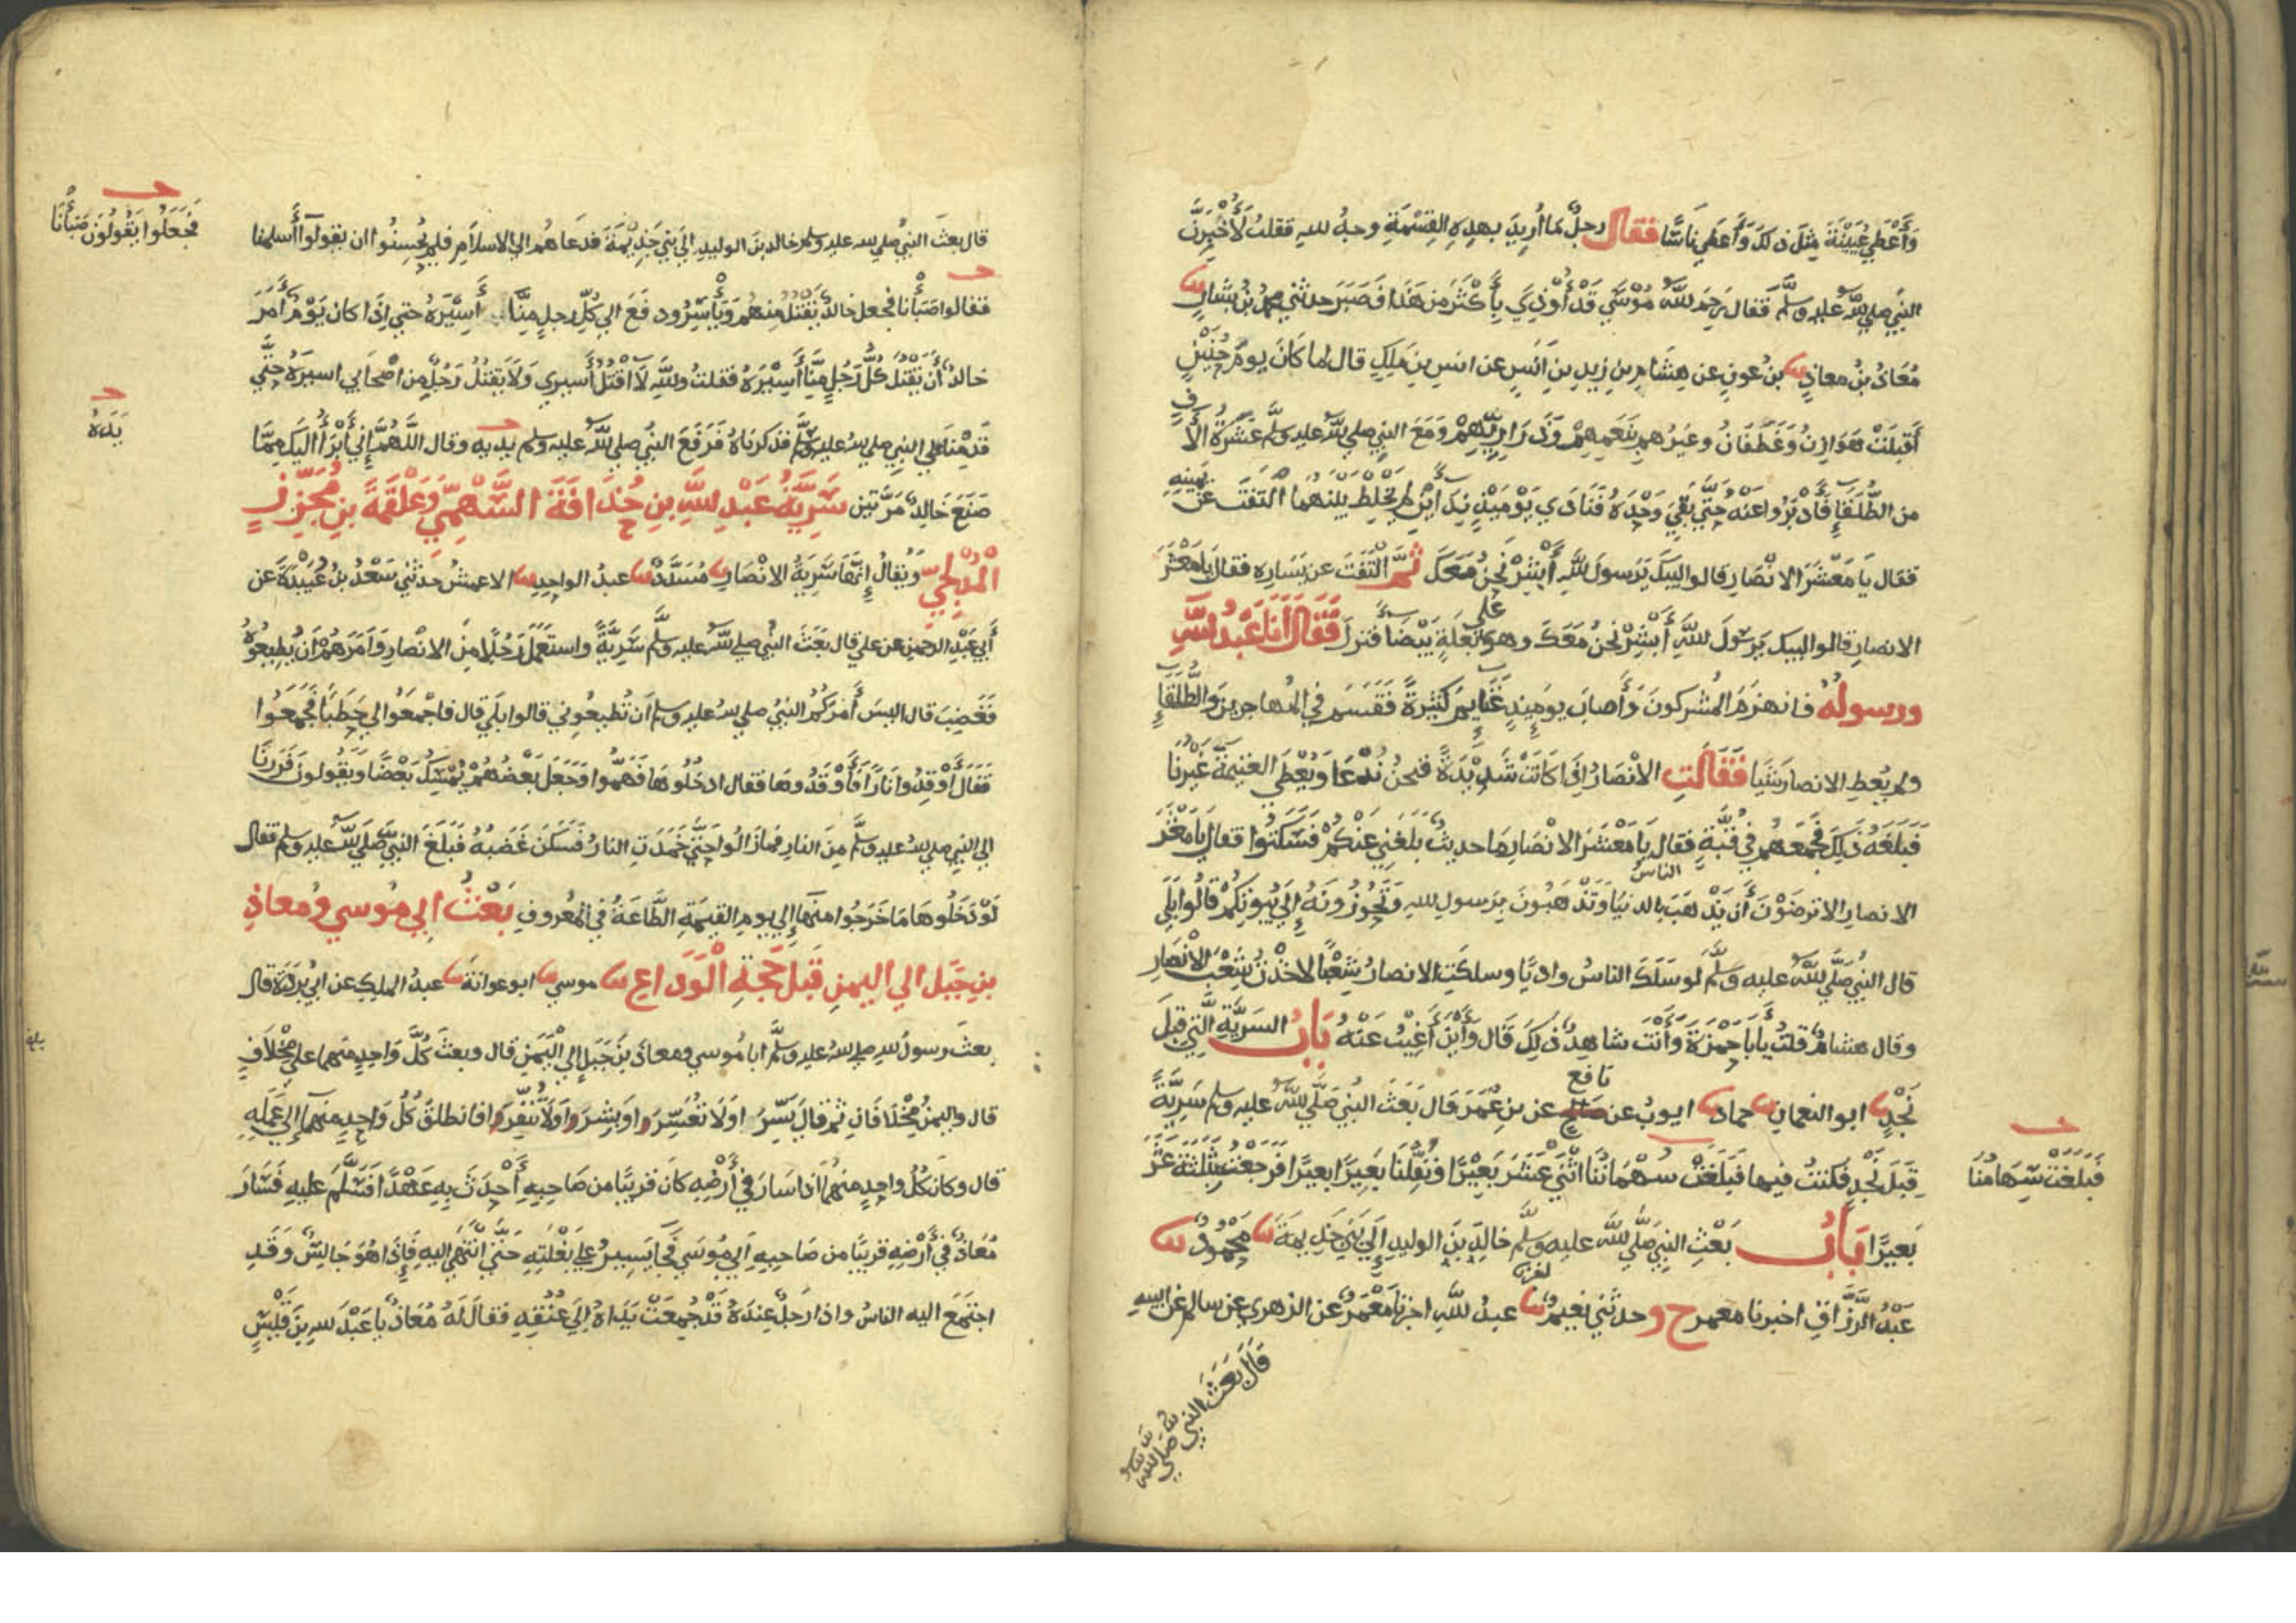 وَأَعْطَى عُيَيْنَةَ مِثْلَ ذلكَ وَأَعطى نَاسًا فقال رجلٌ ما أُرِيدَ بهذِهِ القِسْمَةِ وجهُ لله فقلتُ لَأُخْبِرَنَّ
النبي صلي لله عليه وسلم فقال رَحِمَ لله مُوْسَى قَدْ أُوْذِيَ بِأَكْثَرَ من هَذَا فَصَبَرَ حدثني محمد بنُ بشارٍ ثنا
مُعَاذُ بنُ معاذٍ ثنا بنُ عونٍ عن هِشَامِ بنِ زيدِ بنِ اَنَسٍ عن انسِ بنِ مٰلِكٍ قال لما كَانَ يومُ حُنَيْنٍ
أَقبَلَتْ هَوَازِنُ وَغَطَفَانُ وغيرُهم بِنَعَمِهِمْ وَذَرَارِيِّهِمْ وَمَعَ النبي صلي لله عليه وسلم عَشَرَةُ الَافٍ
من الطُّلَقَاءِ فَأَدْبَرُوا عَنْه حَتَّى بَقِيَ وَحْدَهُ فَنَادَى يَوْمَئِذٍ نِدَاءَيْنِ لم يَخْلِط بَيْنَهُمَا اْلتَفَتَ عن يَمِينِهِ
فقال يَا مَعْشَرَ الانْصَارِ قالوا لبيك يَرَسولَ للهِ أَبْشِرْ نَحنُ مَعَكَ ثمَّ الْتَفَتَ عن يَسَارِهِ فقال يَا مَعْشَرَ
الانصارِ قالوا لبيك يَرَسُولَ للهِ أَبْشِرْ نَحنُ مَعَكَ وهو عَلَى بَغلَةٍ بَيْضَاءَ فنزلَ فَقَالَ أَنَا عَبْدُ للهِ
ورسولُهُ فانهزمَ المُشركونَ وَأَصابَ يومَئِذٍ غَنَايِمَ كَثِيْرَةً فَقَسَمَ في المُهاجرينَ وَالطُّلَقَاءِ
ولم يُعطِ الانصارَ شَيْيًا فَقَالَتِ الاَنْصَارُ اِذَا كَانَتْ شَدِيْدَةٌ فنحنُ نُدْعَا وَيُعْطَى الغنيمةَ غَيْرُنَا
فَبَلَغَهُ ذَلِكَ فَجَمَعَهُمْ في قُبَّةٍ فقال يَا مَعْشَرَ الاَنْصَارِ مَا حديثٌ بَلَغَنِي عَنْكُمْ فَسَكَتُوا فقال يَا مَعْشَرَ
الانصارِ الا ترضَوْنَ أَن يَذْهَبَ الناسُ بالدنيَا وَتَذْهَبُونَ بِرَسولِ للهِ تَحُوزُونَهُ إِلَى بُيوتِكُمْ قَالُوا بَلَى
قال النبي صَلَّي لله عليه وسلم لو سَلَكَ الناسُ وادِيًا وسلكَتِ الانصارُ شِعْبًا لأَخَذْتُ شِعْبَ الاَنْصَارِ
وقال هشامٌ قلتُ يأبا حَمْزَةَ وَأَنْتَ شاهدٌ ذلِكَ قَالَ وَأَيْنَ أَغِيْبُ عَنْهُ بَابُ السَرِيَّةِ التِي قِبَلَ
نَجْدٍ ثنا ابو النعمانِ ثنا حماد ثنا ايوبُ عن نافع عن بنِ عُمَرَ قال بَعَثَ النبي صَلَّي لله عليه وسلم سَرِيَّةً
قِبَلَ نَجْدٍ فكنتُ فيها فَبَلَغَتْ سُهْمَانُنَا اثْنَيْ عَشَرَ بَعِيْرًا وَنُفِّلْنَا بَعِيْرًا بعيرًا فَرَجَعْتُ بِثَلٰثَةَ عَشَرَ
فَبَلَغَتْ سِهَامُنَا
بَعِيرًا بَابُ بَعْثِ النبي صَلَّي لله عليه وسلم خالدَ بنَ الوليدِ إِلَى بَنِي جَذِيمَةَ ثنا مَحْمُودٌ ثنا
عَبْدُ الرَّزَّاقِ اخبرنا معمر ح وحدثني نعيمٌ ثنا عبدُ للهِ اخبرنا مَعْمَرٌ عن الزهري عن سالم عن ابيهِ
قَالَ بَعَثَ النبي صَلَّي لله
قال بعثَ النبيُ صلي لله عليه وسلم خالدَ بنَ الوليدِ إلَى بَنِي جَذِيْمَةَ فدعَاهُم الى الاسلاَمِ فلم يُحْسِنُوا ان يقولوا أَسلمنا
فَجَعَلُوا يَقُولُونَ صَبَأْنَا
فقالوا صَبَأْنا فجعل خالدٌ يَقْتُلُ مِنهُمْ وَيَأْسِرُ ودفَعَ الى كُلِّ رجلٍ مِنَّا أَسِيْرَهُ حتى اِذَا كان يَوْمٌ أَمَرَ
خالدٌ أَن يَقْتُلَ كُلُّ رَجُلٍ مِنَّا أَسِيْرَهُ فقلتُ وللهِ لاَ اَقْتُلُ أَسيري وَلاَ يَقتُلُ رَجُلٌ من اصْحَابي اسيرَهُ حَتَّى
يَدَهُ
قَدِمْنَا على النبي صلي لله عليه وسلم فذكرنَاهُ فَرَفَعَ النبيُ صلي لله عليه وسلم يديه وقال اللَّهُمَّ إِنِّي أَبْرَأُ إِلَيكَ مِمَّا
صَنَعَ خَالِدٌ مَرَّتين سَرِيَّةُ عَبْدِ للهِ بنِ حُذَافَةَ السَّهْمِيِّ وَعَلْقَمَةَ بنِ مُجَزِّزٍ
المُدْلِجِيّ وَيُقالُ إِنَّهَا سَرِيَةُ الانْصَارِ ثنا مُسَدَّدٌ ثنا عبدُ الواحِدِ ثنا الاعمشُ حدثني سَعْدُ بنُ عُبَيْدَةَ عن
أَبِي عَبْدِ الرحمنِ عن علي قال بَعَثَ النبي صلي لله عليه وسلم سَرِيَّةً واستَعْمَلَ رَجُلاً مِنَ الانْصارِ وَأَمَرَهُمْ أَن يُطِيعُوهُ
فَغَضِبَ قال اليسَ أَمَرَكُمُ النبيُ صلي لله عليه وسلم أَن تُطيعُوني قالوا بلَى قال فاجْمَعُوا لي حَطَبًا فَجَمَعُوا
فَقَالَ أَوْقِدُوا نَارًا فَأَوْقَدُوهَا فقال ادخُلُوهَا فَهَمُّوا وَجَعَلَ بَعْضُهُمْ يُمْسِكُ بَعْضًا وَيَقُولونَ فَرَرْنَا
الى النبي صلي لله عليه وسلم مِنَ النارِ فمازَالُوا حَتَّى خَمَدَتِ النارُ فَسَكَنَ غَضَبُهُ فَبَلَغَ النبيَّ صَلَّي لله عليه وسلم فقال
لَوْ دَخَلُوهَا مَا خَرَجُوا منهَا إِلى يومِ القيٰمَةِ الطَّاعَةُ في المعْرُوفِ بَعْثُ ابِي مُوسي وَمُعاذِ
بنِ جَبَل الى اليمنِ قَبلَ حَجَّةِ الْوَدَاعِ ثنا موسي ثنا ابو عوانةَ ثنا عبدُ الملِكِ عن ابي بُرْدَةَ قال
بعثَ رسولُ للهِ صلي لله عليه وسلم ابا مُوسي ومعاذَ بنَ جَبَلٍ إلى اليَمَنِ قال وبعثَ كُلَّ وَاحِدٍ منهما على مِخْلاَفٍ
قال واليمنُ مِخْلاَفَانِ ثم قال يَسِّرَا وَلاَ تُعَسِّرَا وَبَشِّرَا وَلاَ تُنَفِّرَا فانطلقَ كُلُّ وَاحِدٍ منهمَا إِلَى عَمَلِهِ
قال وكانَ كُلُ واحِدٍ منهُمَا اذا سَارَ في أَرْضِهِ كَانَ قريبًا من صَاحِبِهِ أَحْدَثَ بِهِ عَهْدًا فَسَلَّمَ عليهِ فَسَارَ
مُعَاذٌ فِي أَرْضِهِ قريبًا من صَاحِبِهِ أَبِي مُوْسَى فَجَآءَ يَسِيرُ عَلى بَغْلَتِهِ حَتَّى انْتَهَى اليه فَإِذَا هُوَ جَالِسٌ وَقَدِ
اجتَمَعَ اليه الناسُ واذا رَجلٌ عِندَهُ قَدْ جُمِعَتْ يَدَاهُ إِلَى عُنُقِهِ فقالَ لَهُ مُعَاذٌ يا عَبْدَ للهِ بنَ قَيْسٍ